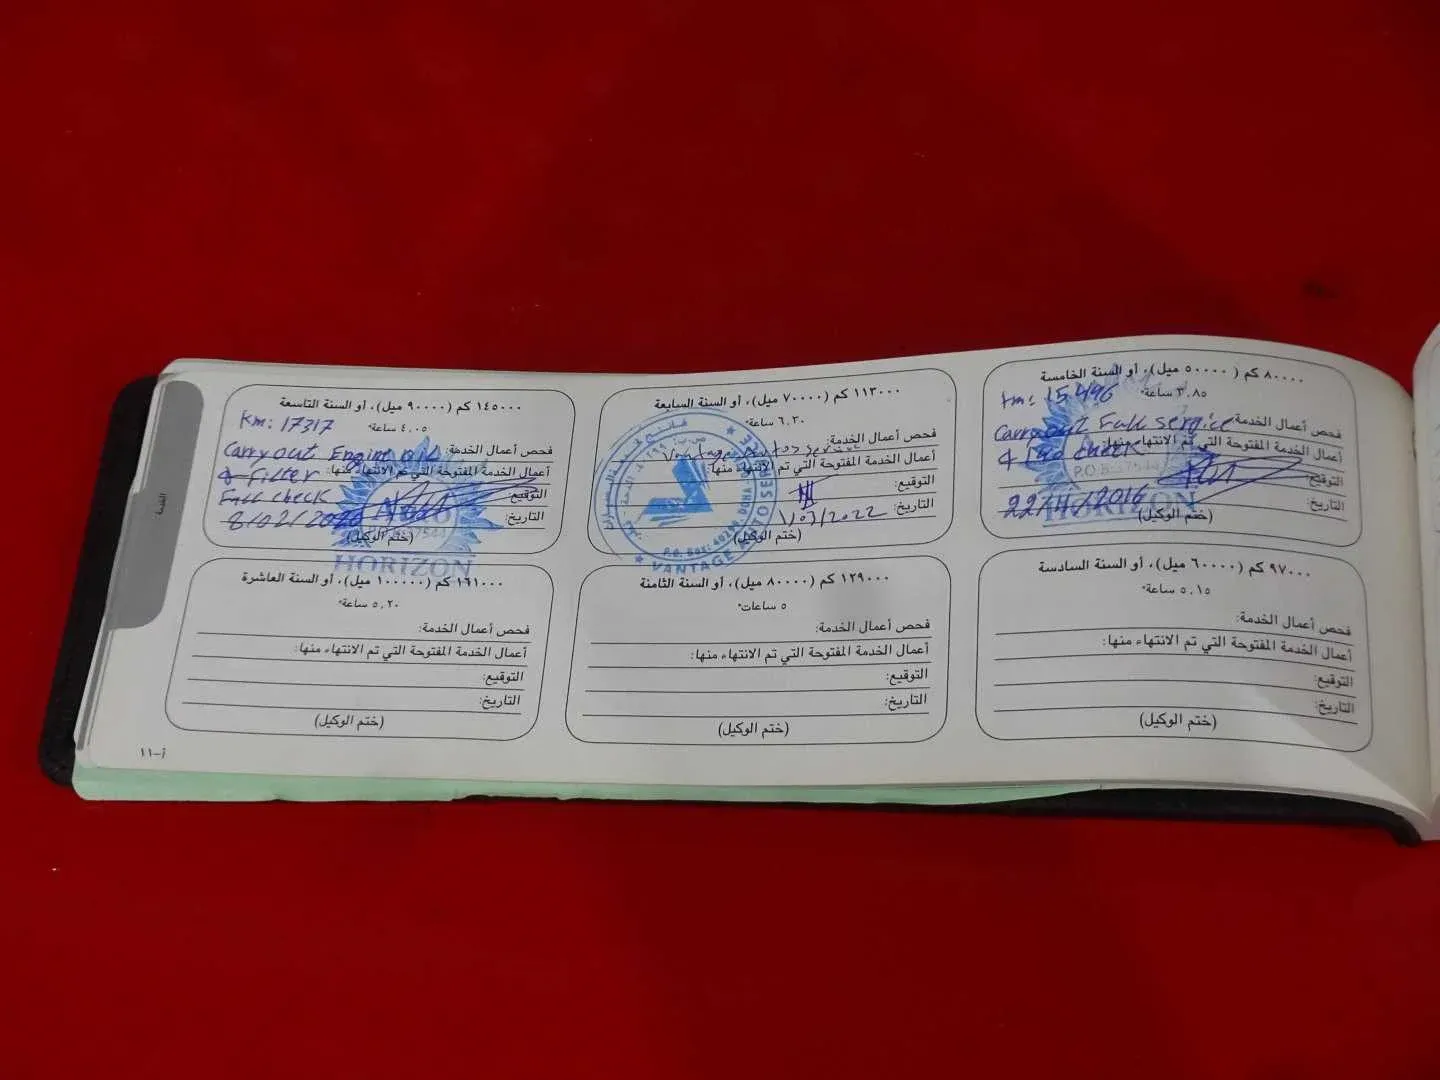 ٨٠٠٠٠ كم (٥٠٠٠٠ ميل)، أو السنة الخامسة
٣,٨٥ ساعة*
km: 15496
فحص أعمال الخدمة:
Carry out Full service
أعمال الخدمة المفتوحة التي تم الانتهاء منها:
check
P.O.B:
التوقيع:
22/4/2016
HORIZON
التاريخ:
(ختم الوكيل)
١١٣٠٠٠ كم (٧٠٠٠٠ ميل)، أو السنة السابعة
٦,٣٠ ساعة*
فحص أعمال الخدمة:
Vantage Autos service
أعمال الخدمة المفتوحة التي تم الانتهاء منها:
التوقيع:
التاريخ:
/2022
(ختم الوكيل)
VANTAGE AUTO
١٤٥٠٠٠ كم (٩٠٠٠٠ ميل)، أو السنة التاسعة
٤,٠٥ ساعة*
km: 17317
فحص أعمال الخدمة:
Carry out Engine oil
أعمال الخدمة المفتوحة التي تم الانتهاء منها:
& Filter
التوقيع:
Full check
التاريخ:
8/02/
(ختم الوكيل)
HORIZON
٩٧٠٠٠ كم (٦٠٠٠٠ ميل)، أو السنة السادسة
٥,١٥ ساعة*
فحص أعمال الخدمة:
أعمال الخدمة المفتوحة التي تم الانتهاء منها:
التوقيع:
التاريخ:
(ختم الوكيل)
١٢٩٠٠٠ كم (٨٠٠٠٠ ميل)، أو السنة الثامنة
٥ ساعات*
فحص أعمال الخدمة:
أعمال الخدمة المفتوحة التي تم الانتهاء منها:
التوقيع:
التاريخ:
(ختم الوكيل)
١٦١٠٠٠ كم (١٠٠٠٠٠ ميل)، أو السنة العاشرة
٥,٢٠ ساعة*
فحص أعمال الخدمة:
أعمال الخدمة المفتوحة التي تم الانتهاء منها:
التوقيع:
التاريخ:
(ختم الوكيل)
الخدمة
أ-١١